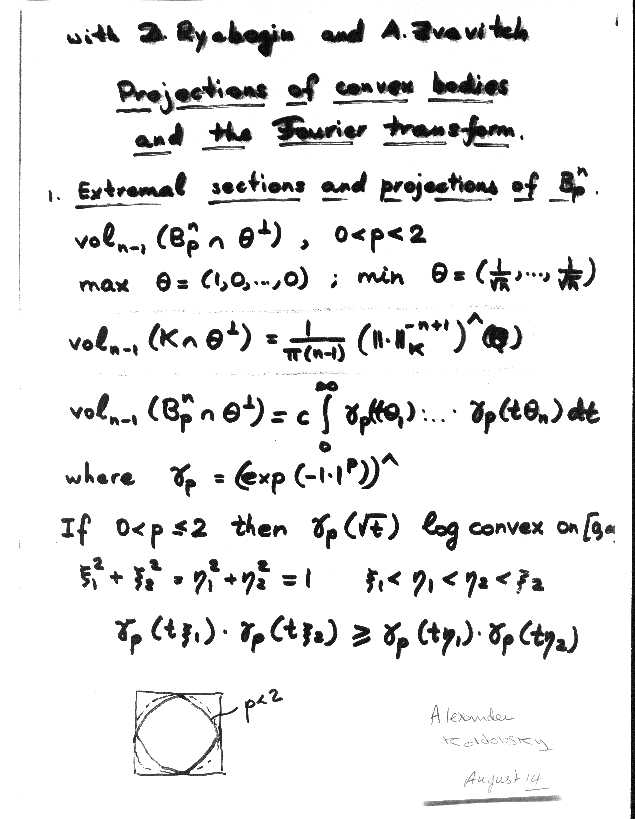 with D. Ryabogin and A. Zvavitch
Projections of convex bodies
and the Fourier transform.
1. Extremal sections and projections of Bₚⁿ.
volₙ₋₁ (Bₚⁿ ∩ θ^⊥) , 0<p<2
max θ = (1,0,...,0) ; min θ = (1/√n,...,1/√n)
volₙ₋₁ (K ∩ θ^⊥) = 1/(π(n-1)) (‖·‖_K^{-n+1})^∧(θ)
volₙ₋₁ (Bₚⁿ ∩ θ^⊥) = c ∫₀^∞ γₚ(tθ₁)·...·γₚ(tθₙ) dt
where γₚ = (exp(-|·|^p))^∧
If 0<p≤2 then γₚ(√t) log convex on [0,∞
ξ₁² + ξ₂² = η₁² + η₂² = 1 ξ₁ < η₁ < η₂ < ξ₂
γₚ(tξ₁) · γₚ(tξ₂) ≥ γₚ(tη₁) · γₚ(tη₂)
p<2
Alexander
Koldobsky
August 14